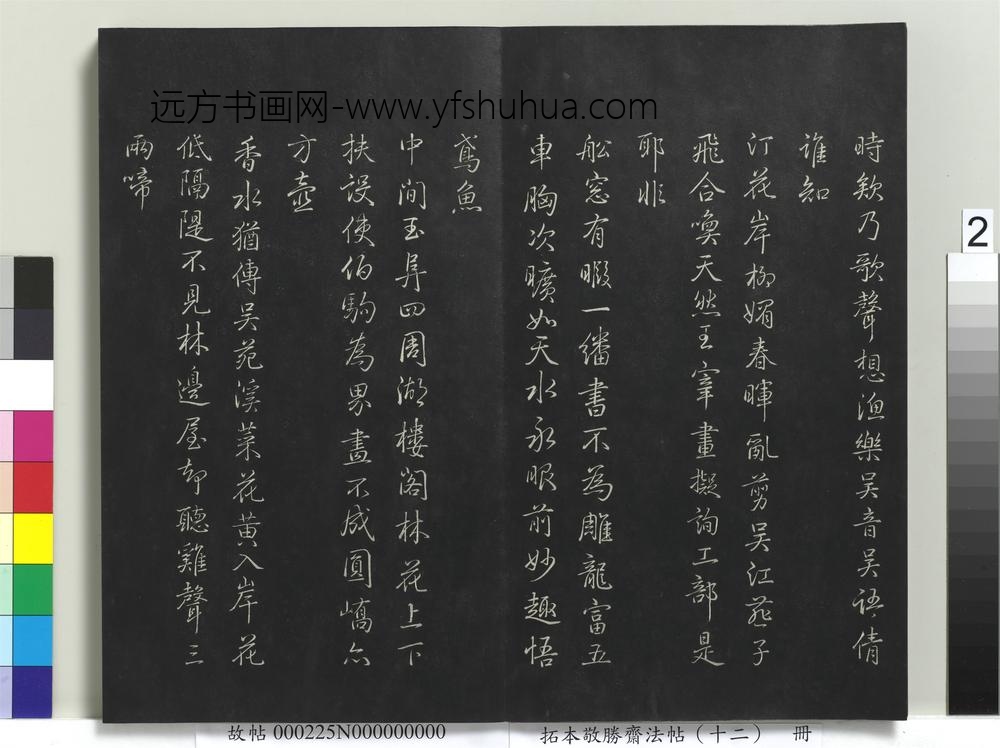 远方书画网-www.yfshuhua.com
時欸乃歌聲想漁樂吳音吳語倩
誰知
汀花岸柳媚春暉亂剪吳江燕子
飛合喚天然王宰畫擬詢工部是
耶非
舩窓有暇一繙書不為雕龍富五
車胸次曠如天水永眼前妙趣悟
鳶魚
中間玉㠀四周湖樓閣林花上下
扶設使伯駒為界畫不成圓嶠亦
方壺
香水猶傳吳苑溪菜花黃入岸花
低隔隄不見林邊屋却聽雞聲三
兩啼
2
故帖 000225N000000000
拓本敬勝齋法帖（十二） 冊